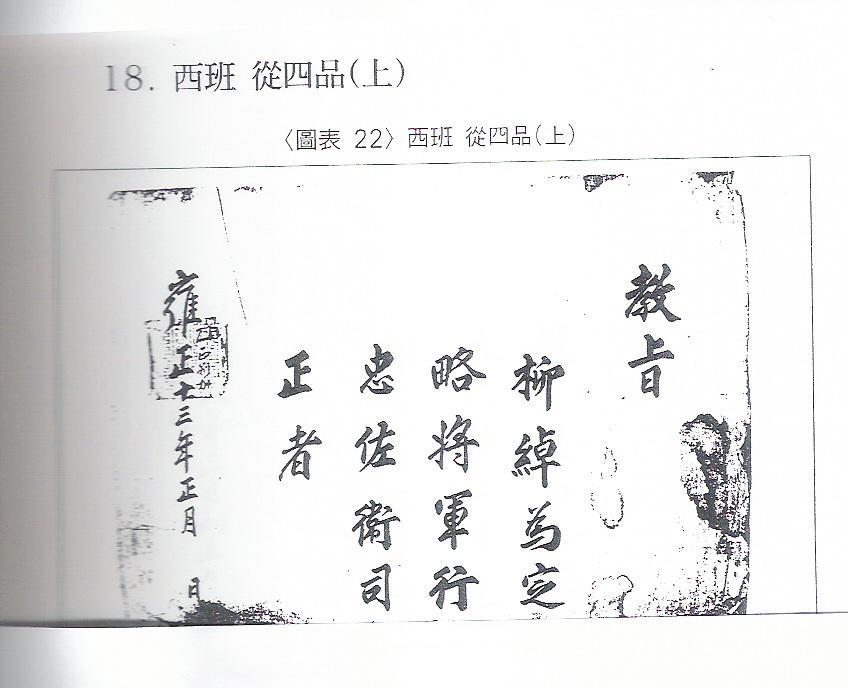 18. 西班 從四品(上)
〈圖表 22〉 西班 從四品(上)
敎旨
柳綽為定
略將軍行
忠佐衛司
正者
雍正十三年正月 日